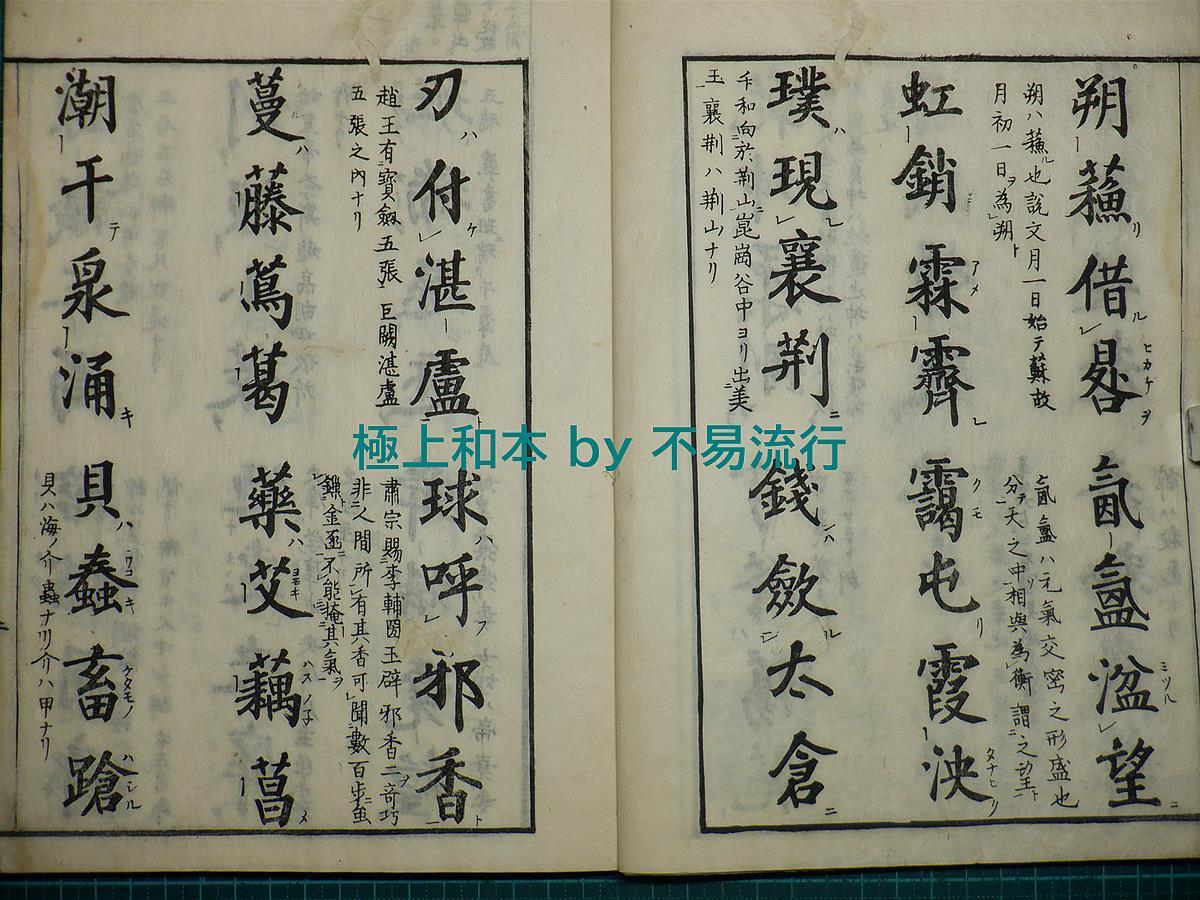 朔蘓借晷氤氳湓望
朔ハ蘓ル也説文月一日始テ蘇故
月初一日ヲ為朔ト
氤氳ハ元氣交密之形盛也
分テ天之中相與為衡謂之望ト
虹銷霖霽靄屯霞泱
璞現襄荆錢斂太倉
卞和向於荆山崑崗谷中ヨリ出美
玉襄荆ハ荆山ナリ
刃付湛盧球呼邪香
趙王有寶劔五張巨闕湛盧
五張之内ナリ
肅宗賜李輔國玉辟邪香二奇巧
非人間所有其香可聞數百歩雖
鎻金函不能掩其氣ヲ
蔓藤蔦葛藥艾藕菖
潮干泉涌貝蠢畜蹌
貝ハ海ノ介蟲ナリ介ハ甲ナリ
極上和本 by 不易流行